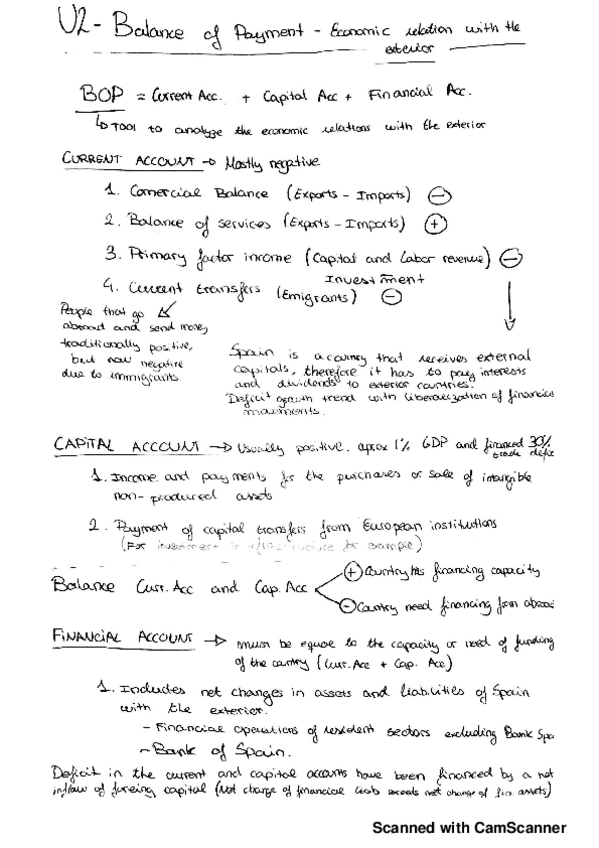 U2 - Balance of Payment - Economic relation with the
exterior
BOP = Current Acc. + Capital Acc + Financial Acc.
↳ TOOL to analyze the economic relations with the exterior
CURRENT ACCOUNT → Mostly negative
1. Comercial Balance (Exports - Imports) ⊖
2. Balance of services (Exports - Imports) ⊕
3. Primary factor income (Capital and Labor revenue) ⊖
Investment
4. Current transfers (Emigrants) ⊖
People that go
abroad and send money,
traditionally positive,
but now negative
due to immigrants
Spain is a country that receives external
capitals, therefore it has to pay interests
and dividends to exterior countries.
Deficit growth trend with liberalization of financial
movements.
CAPITAL ACCOUNT → Usually positive. aprox 1% GDP and financed 30%
trade defic
1. Income and payments for the purchases or sale of intangible
non-produced assets
2. Payment of capital transfers from European institutions
(For investment in infrastructure for example)
Balance Curr. Acc and Cap. Acc
⊕ Country has financing capacity
⊖ Country need financing from abroad
FINANCIAL ACCOUNT → must be equal to the capacity or need of funding
of the country (Curr. Acc + Cap. Acc)
1. Includes net changes in assets and liabilities of Spain
with the exterior.
- Financial operations of resident sectors excluding Bank Spa
- Bank of Spain.
Deficit in the current and capital accounts have been financed by a net
inflow of foreing capital (Net change of financial liab exceeds net change of fin assets)
Scanned with CamScanner